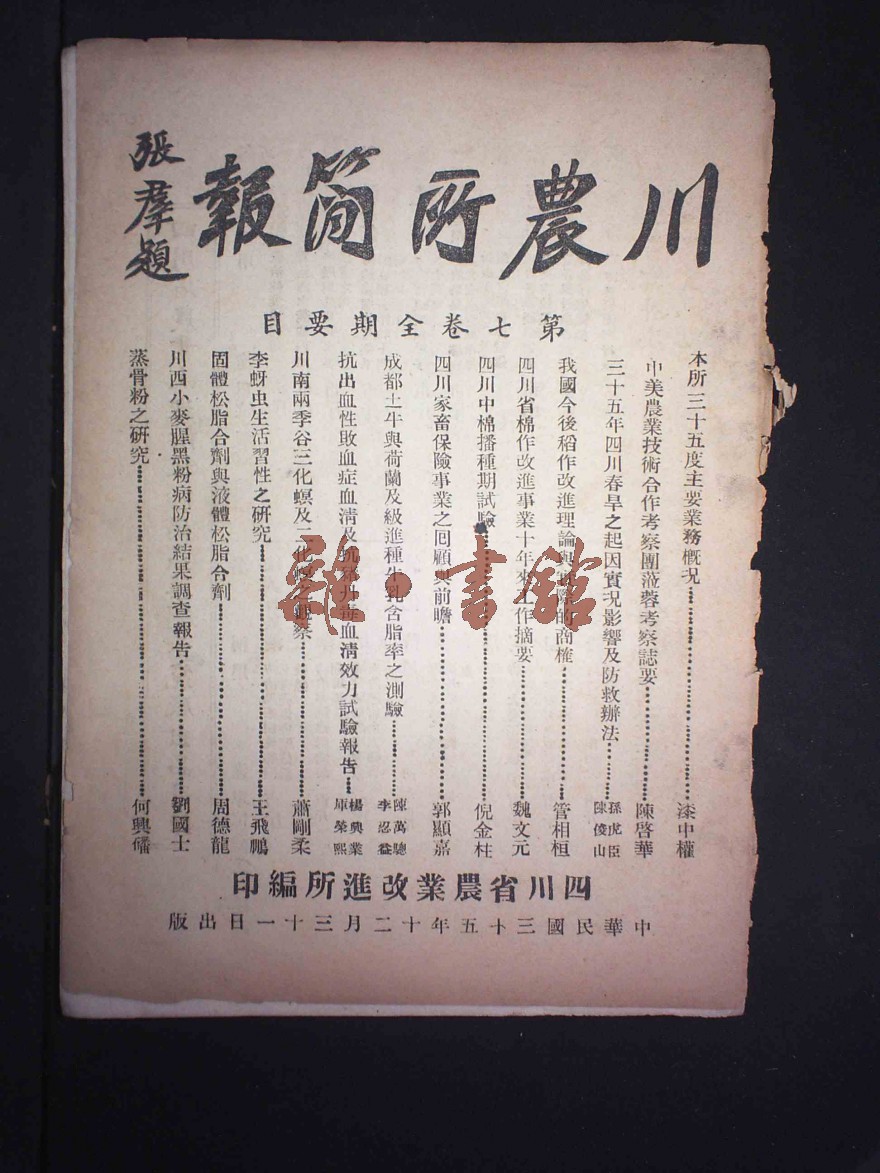 川農所簡報
張羣題
第七卷全期要目
本所三十五度主要業務概况 漆中權
中美農業技術合作考察團蒞蓉考察誌要 陳啓華
三十五年四川春旱之起因實况影響及防救辦法 孫虎臣 陳俊山
我國今後稻作改進理論與實際的商榷 管相桓
四川省棉作改進事業十年來工作摘要 魏文元
四川中棉播種期試驗 倪金柱
四川家畜保險事業之回顧與前瞻 郭顯嘉
成都土牛與荷蘭及級進種牛乳含脂率之測驗 陳萬聰 李忍益
抗出血性敗血症血清及抗豬丹毒血清效力試驗報告 楊興業 庫榮熙
川南兩季谷三化螟及二化螟之觀察 蕭剛柔
李蚜虫生活習性之研究 王飛鵬
固體松脂合劑與液體松脂合劑 周德龍
川西小麥腥黑粉病防治結果調查報告 劉國士
蒸骨粉之研究 何興
四川省農業改進所編印
中華民國三十五年十二月三十一日出版
雜·書館